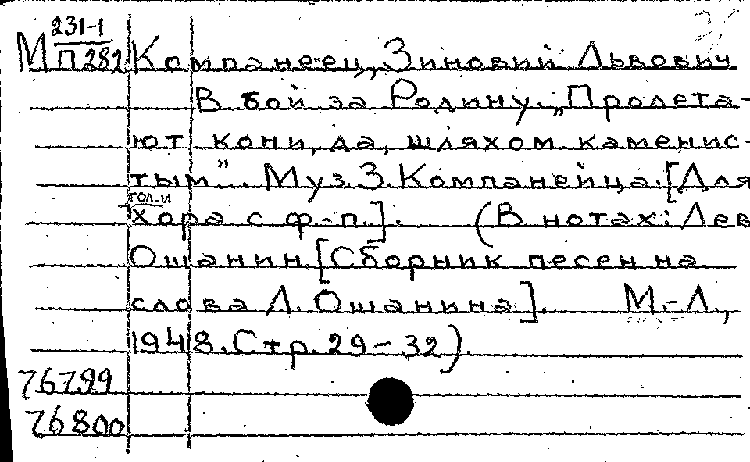 М 231-1
П 282 Компанеец, Зиновий Львович
В бой за Родину. „Пролета-
ют кони, да, шляхом каменис-
тым". Муз. З. Компанейца. [Для
гол. и
хора с ф.-п.]. (В нотах: Лев
Ошанин [Сборник песен на
слова Л. Ошанина]. М.-Л.,
1948. Стр. 29-32).
76799
76800